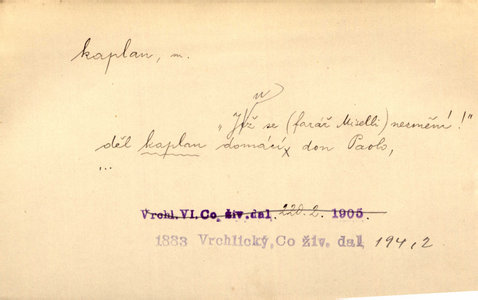 kaplan, m.
u
„Již se (farář Miselli) nezmění!"
děl kaplan domácí, don Paolo,
...
Vrchl. VI. Co živ. dal, 220.2. 1905
1883 Vrchlický, Co živ. dal, 194,2